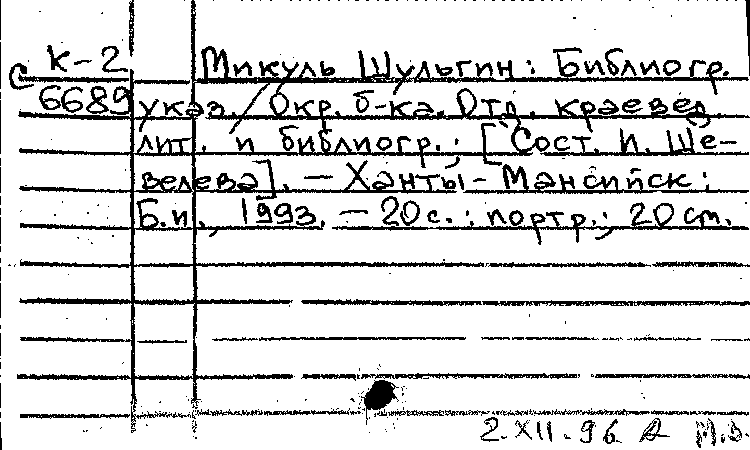 С К-2 Микуль Шульгин: Библиогр.
6689 указ. / Окр. б-ка. Отд. краевед.
лит. и библиогр.; [Сост. И. Ше-
велева]. — Ханты-Мансийск:
Б.и., 1993. — 20 с.: портр.; 20 ст.
2.XII.96